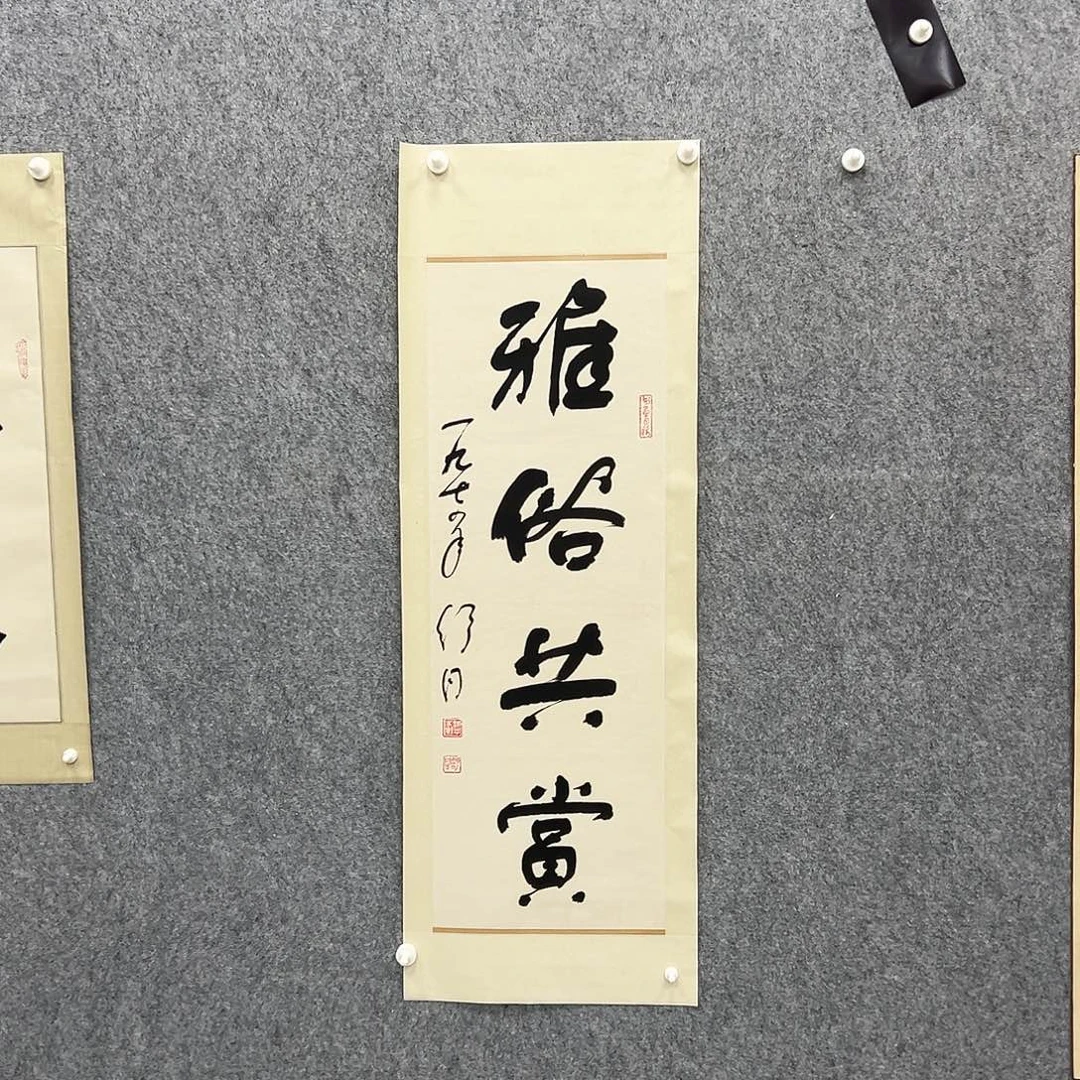 雅俗共賞
一九七四年 舒同